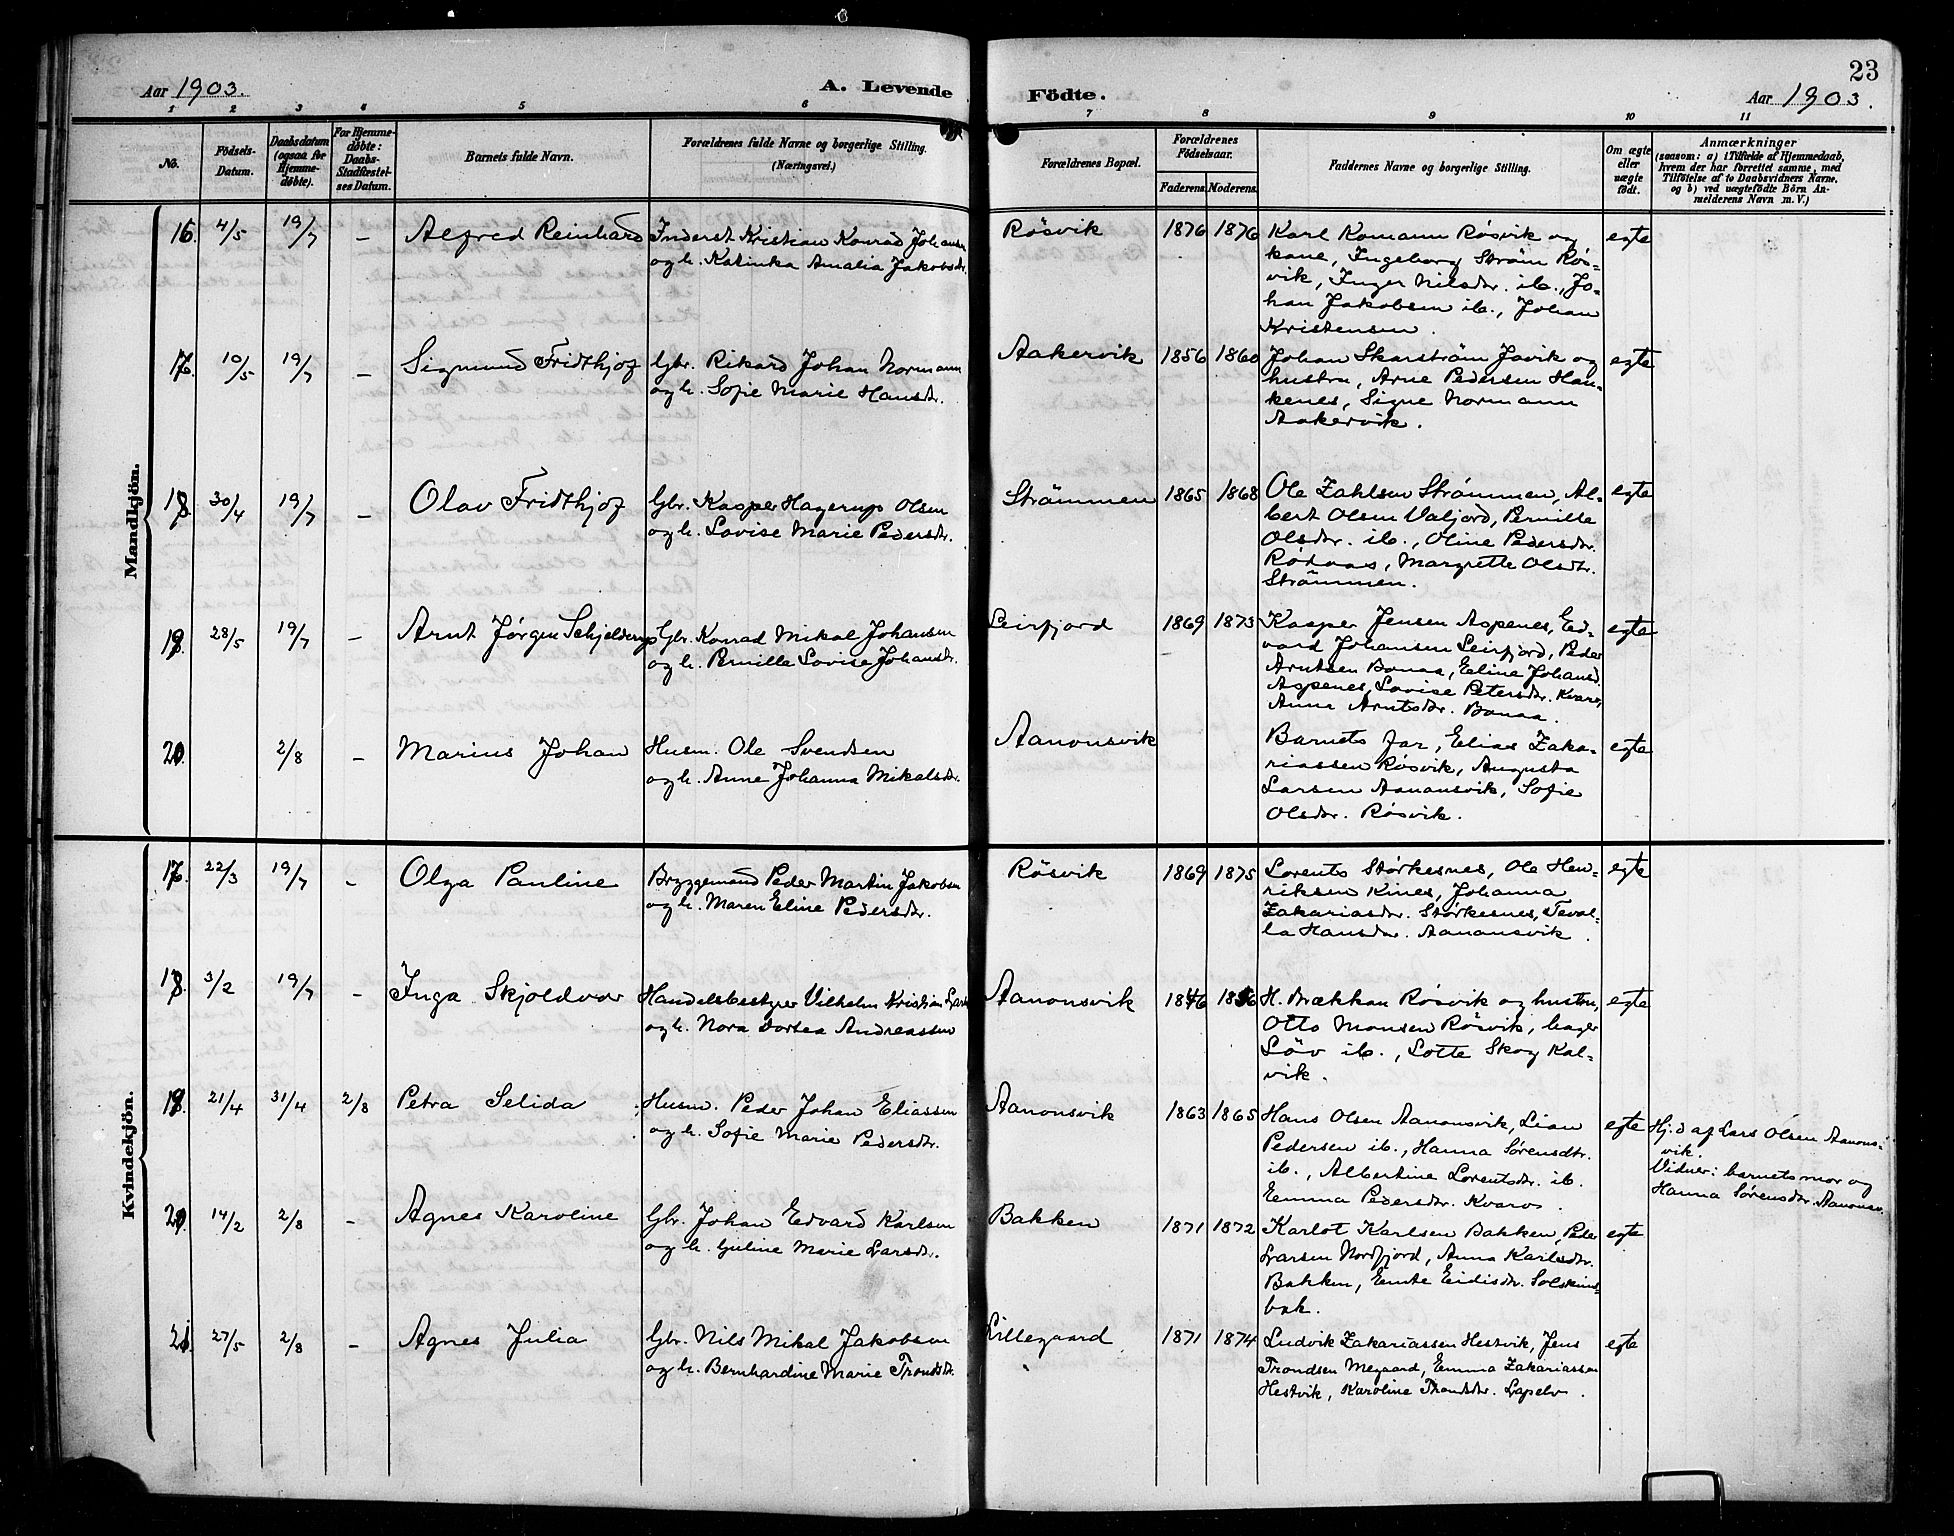 Aar 1903. A. Levende Födte. Aar 1903. 23
1 2 3 4 5 6 7 8 9 10 11
No. Födsels-Datum. Daabsdatum (ogsaa for Hjemmedøbte). For Hjemmedøbte: Daabs-Stadfæstelses Datum. Barnets fulde Navn. Forældrenes fulde Navne og borgerlige Stilling. (Næringsvei.) Forældrenes Bopæl. Forældrenes Födselsaar. Faderens. Moderens. Faddernes Navne og borgerlige Stilling. Om ægte eller uægte født. Anmærkninger (saasom: a) i Tilfælde af Hjemmedaab, hvem der har forrettet samme, med Tilføielse af to Daabsvidners Navne, og b) ved uægtefödte Börn Anmelderens Navn m. V.)
Mandkjön.
16. 4/5 19/7 — Alfred Reinhard Inderst Kristian Konrad Johansen Rösvik 1876 1876 Karl Romann Rösvik og egte
og h. Katinka Amalia Jakobsdr. kone, Ingeborg Ström Rös-
vik, Inger Nilsdr. ib., Jo-
han Jakobsen ib., Johan
Kristensen.
17. 10/5 19/7 — Sigmund Fridthjof Gbr. Rikard Johan Normann Aakervik 1856 1860 Johan Skarström Javik og egte
og h. Sofie Marie Hansdr. hustru, Arne Pedersen Han-
kenes, Signe Normann
Aakervik.
18. 30/4 19/7 — Olav Fridthjof Gbr. Kasper Hagerup Olsen Strömmen 1865 1868 Ole Zahlsen Strömmen, Al- egte
og h. Lovise Marie Pedersdr. bert Olsen Valjord, Pernille
Olsdr. ib., Oline Pedersdr.
Rödaas, Margrette Olsdr.
Strömmen.
19. 28/5 19/7 — Arnt Jørgen Schjelderup Gbr. Konrad Mikal Johansen Leirfjord 1869 1873 Kasper Jensen Aspenes, Ed- egte
og h. Pernille Lovise Johansdr. vard Johansen Leirfjord, Peder
Arntsen Bonaa, Eline Johansd.
Aspenes, Lovise Petersdr. Kvarv,
Anna Arntsdr. Bonaa.
20. 2/8 — Marius Johan Husm. Ole Svendsen Aanonsvik Barnets far, Elias Zaka- egte
og h. Anne Johanna Mikalsdr. riassen Rösvik, Augusta
Larsen Aanonsvik, Sofie
Olsdr. Rösvik.
Kvindekjön.
17. 22/3 19/7 — Olga Pauline Bryggemand Peder Martin Jakobsen Rösvik 1869 1875 Lorents Störkesnes, Ole Hen- egte
og h. Maren Eline Pedersdr. riksen Kines, Johanna
Zakariasdr. Störkesnes, Teval-
la Hansdr. Aanonsvik.
18. 3/2 19/7 — Inga Skjoldvor Handelsbestyrer Vilhelm Kristian Aanonsvik 1846 1856 H. Brækkan Rösvik og hustru, egte
og h. Nora Dortea Andreassen Otto Monsen Rösvik, bager
Löv ib., Lotte Skog Kal-
vik.
19. 21/4 31/4 2/8 Petra Selida Husm. Peder Johan Eliassen Aanonsvik 1863 1865 Hans Olsen Aanonsvik, Lian egte Hj.d af Lars Olsen Aanons-
og h. Sofie Marie Pedersdr. Pedersen ib., Hanna Sörensdtr. vik.
ib., Albertine Lorentsdr. ib. Vidner: barnets mor og
Emma Pedersdr. Kvarv. Hanna Sörensdr. Aanonsv.
20. 14/2 2/8 — Agnes Karoline Gbr. Johan Edvard Karlsen Bakken 1871 1872 Karlot Karlsen Bakken, Peder egte
og h. Guline Marie Larsdr. Larsen Nordfjord, Anna Karlsdr.
Bakken, Emte Eidisdr. Solskins-
bak.
21. 27/5 2/8 — Agnes Julia Gbr. Nils Mikal Jakobsen Lillegaard 1871 1874 Ludvik Zakariassen Hestvik, Jens egte
og h. Bernhardine Marie Trondsdr. Trondsen Megaard, Emma Zakariassen
Hestvik, Karoline Trondsdr. Lapelv.